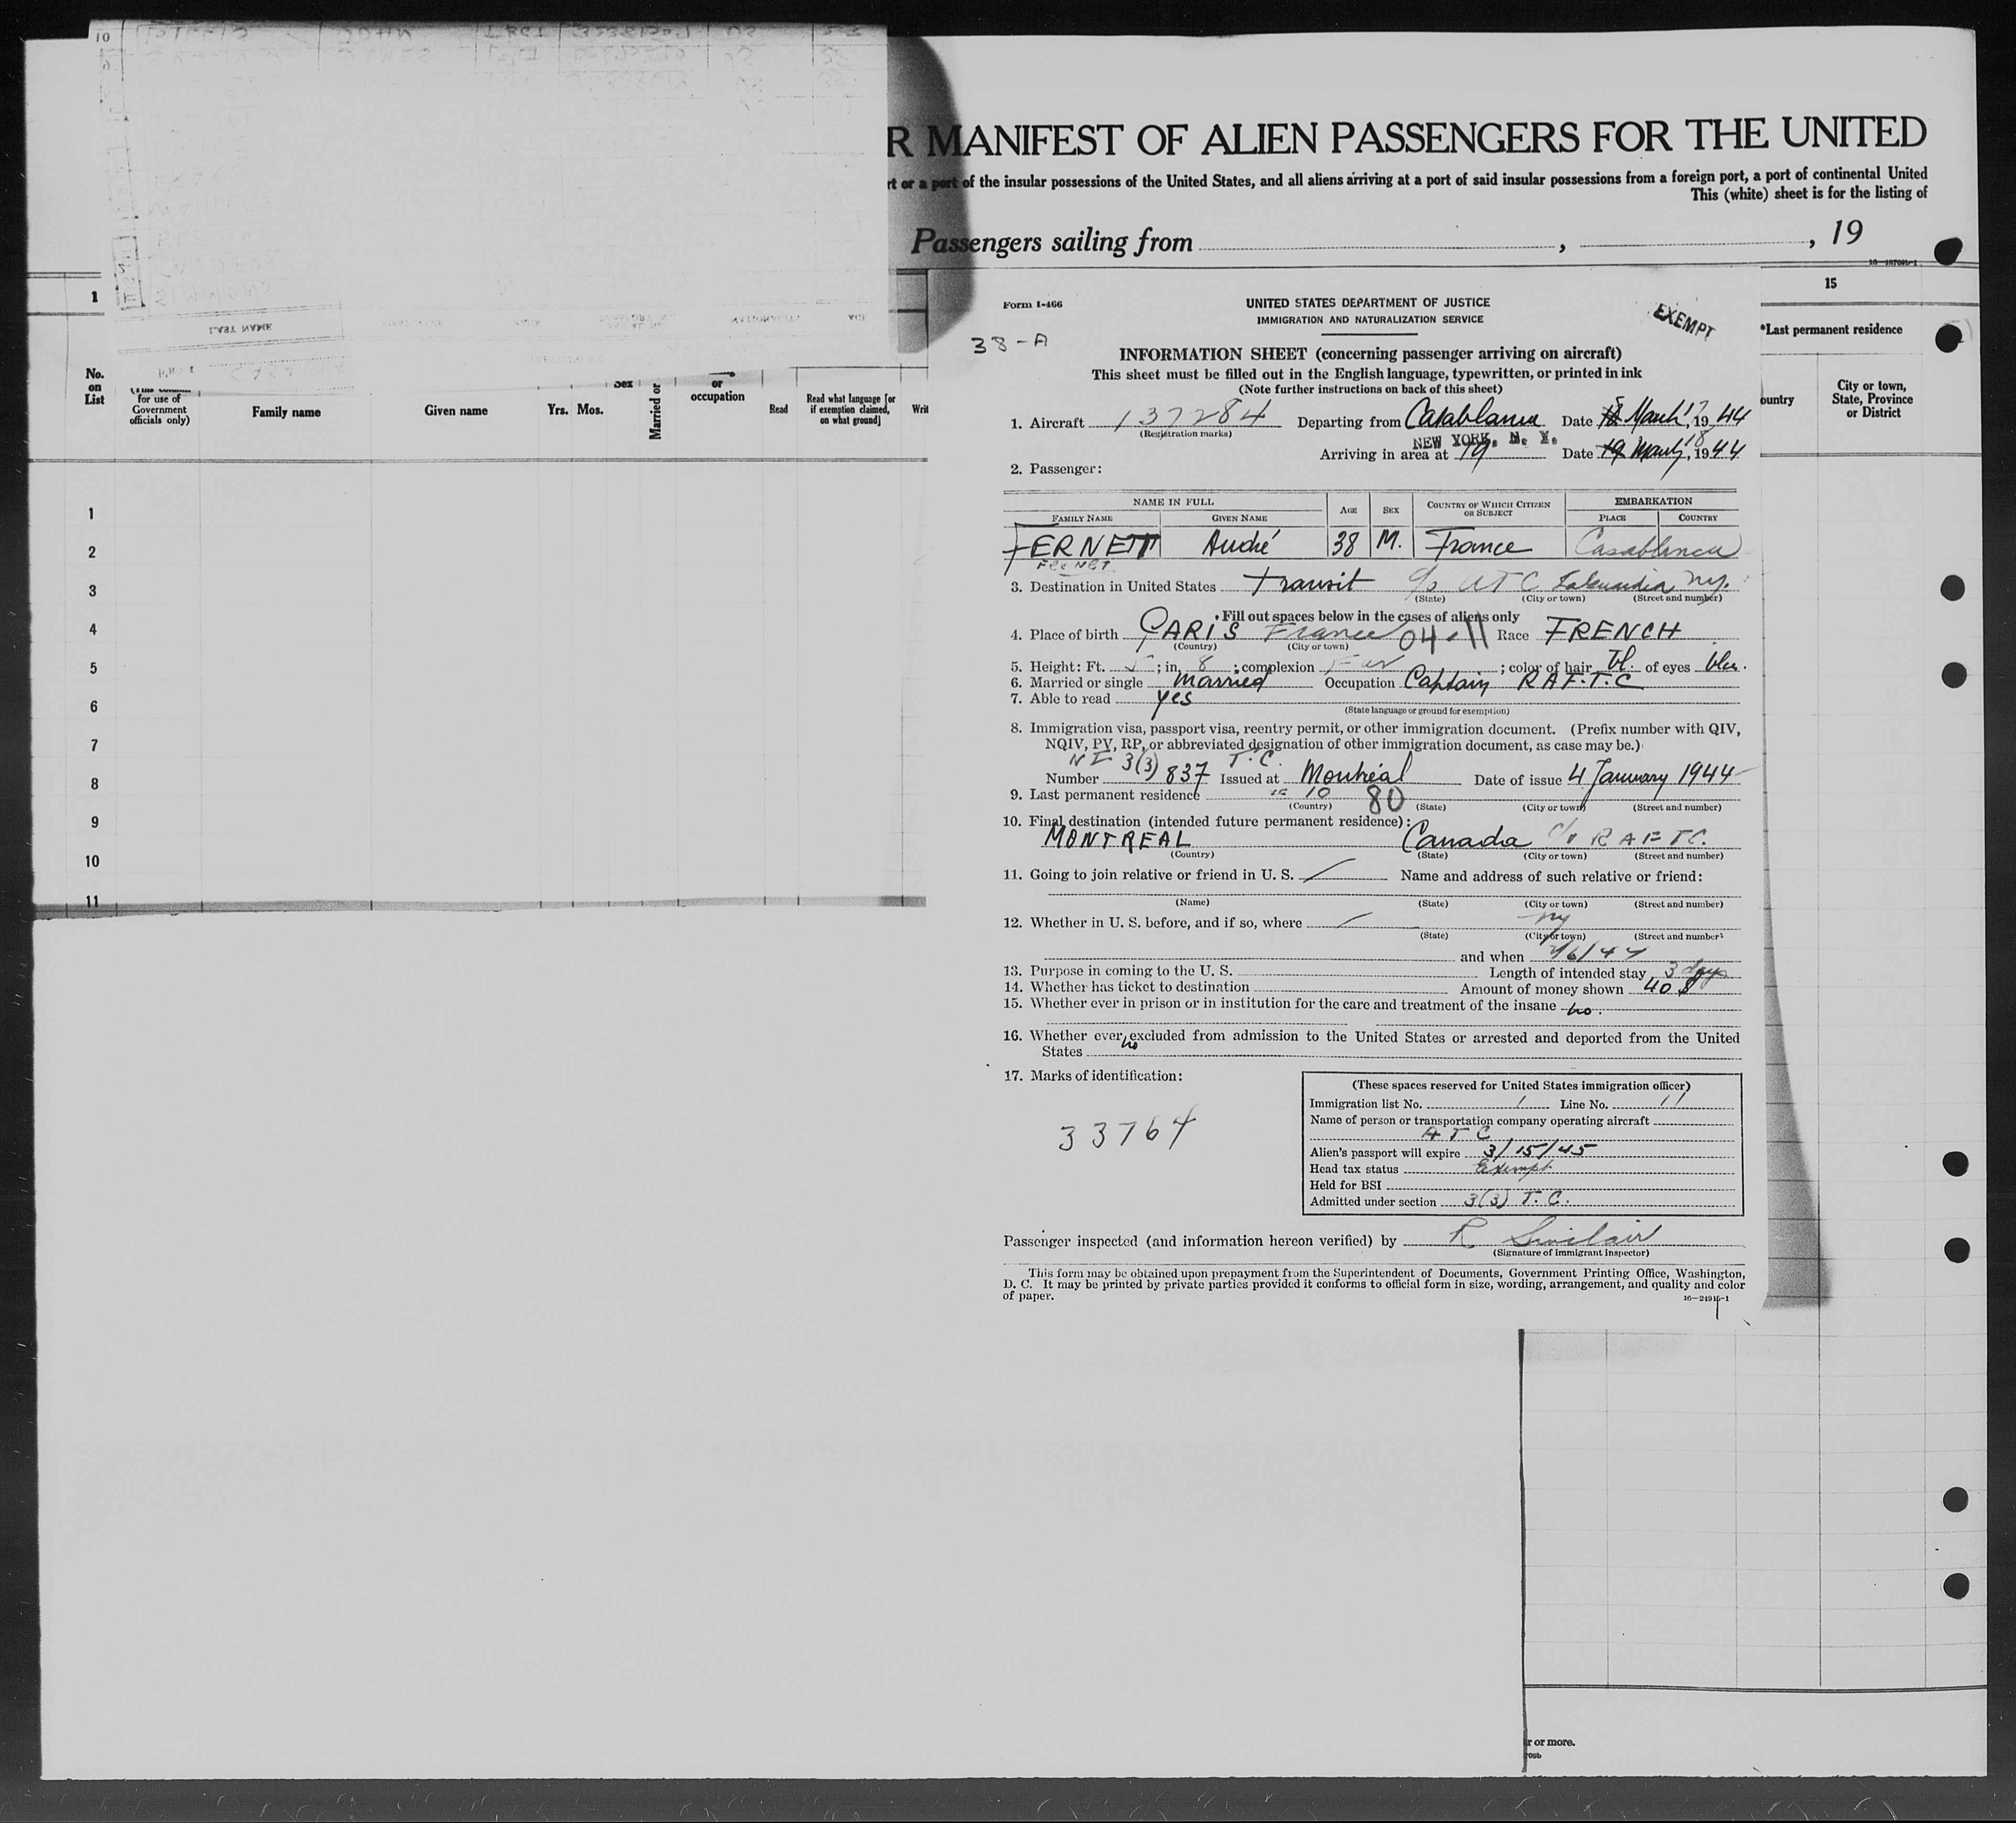 R MANIFEST OF ALIEN PASSENGERS FOR THE UNITED
rt or a port of the insular possessions of the United States, and all aliens arriving at a port of said insular possessions from a foreign port, a port of continental United
This (white) sheet is for the listing of
Passengers sailing from , , 19
1
15
No. on List
for use of Government officials only)
Family name
Given name
Yrs. Mos.
Sex
Married or
or occupation
Read
Read what language [or if exemption claimed, on what ground]
Writ
*Last permanent residence
ountry
City or town, State, Province or District
1
2
3
4
5
6
7
8
9
10
11
LAST NAME
Form I-466
UNITED STATES DEPARTMENT OF JUSTICE
IMMIGRATION AND NATURALIZATION SERVICE
EXEMPT
38-A
INFORMATION SHEET (concerning passenger arriving on aircraft)
This sheet must be filled out in the English language, typewritten, or printed in ink
(Note further instructions on back of this sheet)
1. Aircraft 137284 Departing from Casablanca Date March 17, 1944
(Registration marks)
NEW YORK, N. Y.
Arriving in area at Date 19 March 18, 1944
2. Passenger:
NAME IN FULL
FAMILY NAME GIVEN NAME AGE SEX COUNTRY OF WHICH CITIZEN OR SUBJECT EMBARKATION
PLACE COUNTRY
FERNETT André 38 M. France Casablanca
Fernet
3. Destination in United States Transit c/o ATC LaGuardia NY.
(State) (City or town) (Street and number)
Fill out spaces below in the cases of aliens only
4. Place of birth PARIS France 04-11 Race FRENCH
(Country) (City or town)
5. Height: Ft. 5; in. 8; complexion Fair; color of hair bl. of eyes blue.
6. Married or single Married Occupation Captain RAF.T.C
7. Able to read yes
(State language or ground for exemption)
8. Immigration visa, passport visa, reentry permit, or other immigration document. (Prefix number with QIV,
NQIV, PV, RP, or abbreviated designation of other immigration document, as case may be.)
NI 3(3) T.C.
Number 837 Issued at Montréal Date of issue 4 January 1944
9. Last permanent residence 10 80
(Country) (State) (City or town) (Street and number)
10. Final destination (intended future permanent residence):
MONTREAL Canada c/o RAFTC.
(Country) (State) (City or town) (Street and number)
11. Going to join relative or friend in U. S. / Name and address of such relative or friend:
(Name) (State) (City or town) (Street and number)
12. Whether in U. S. before, and if so, where / NY
(State) (City or town) (Street and number)
and when /6/44
13. Purpose in coming to the U. S. Length of intended stay 3 days
14. Whether has ticket to destination Amount of money shown 40 $
15. Whether ever in prison or in institution for the care and treatment of the insane no.
16. Whether ever excluded from admission to the United States or arrested and deported from the United
States no
17. Marks of identification:
33764
(These spaces reserved for United States immigration officer)
Immigration list No. 1 Line No. 11
Name of person or transportation company operating aircraft
ATC
Alien's passport will expire 3/15/45
Head tax status Exempt
Held for BSI
Admitted under section 3(3) T.C.
Passenger inspected (and information hereon verified) by R Sinclair
(Signature of immigrant inspector)
This form may be obtained upon prepayment from the Superintendent of Documents, Government Printing Office, Washington,
D. C. It may be printed by private parties provided it conforms to official form in size, wording, arrangement, and quality and color
of paper.
r or more.